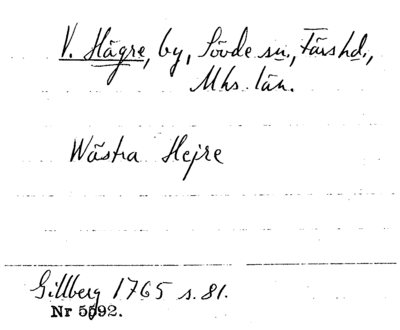 V. Hägre, by, Sövde sn., Färs hd.,
Mhs. län.
Wästra Hejre
Gillberg 1765 s. 81.
Nr 5592.